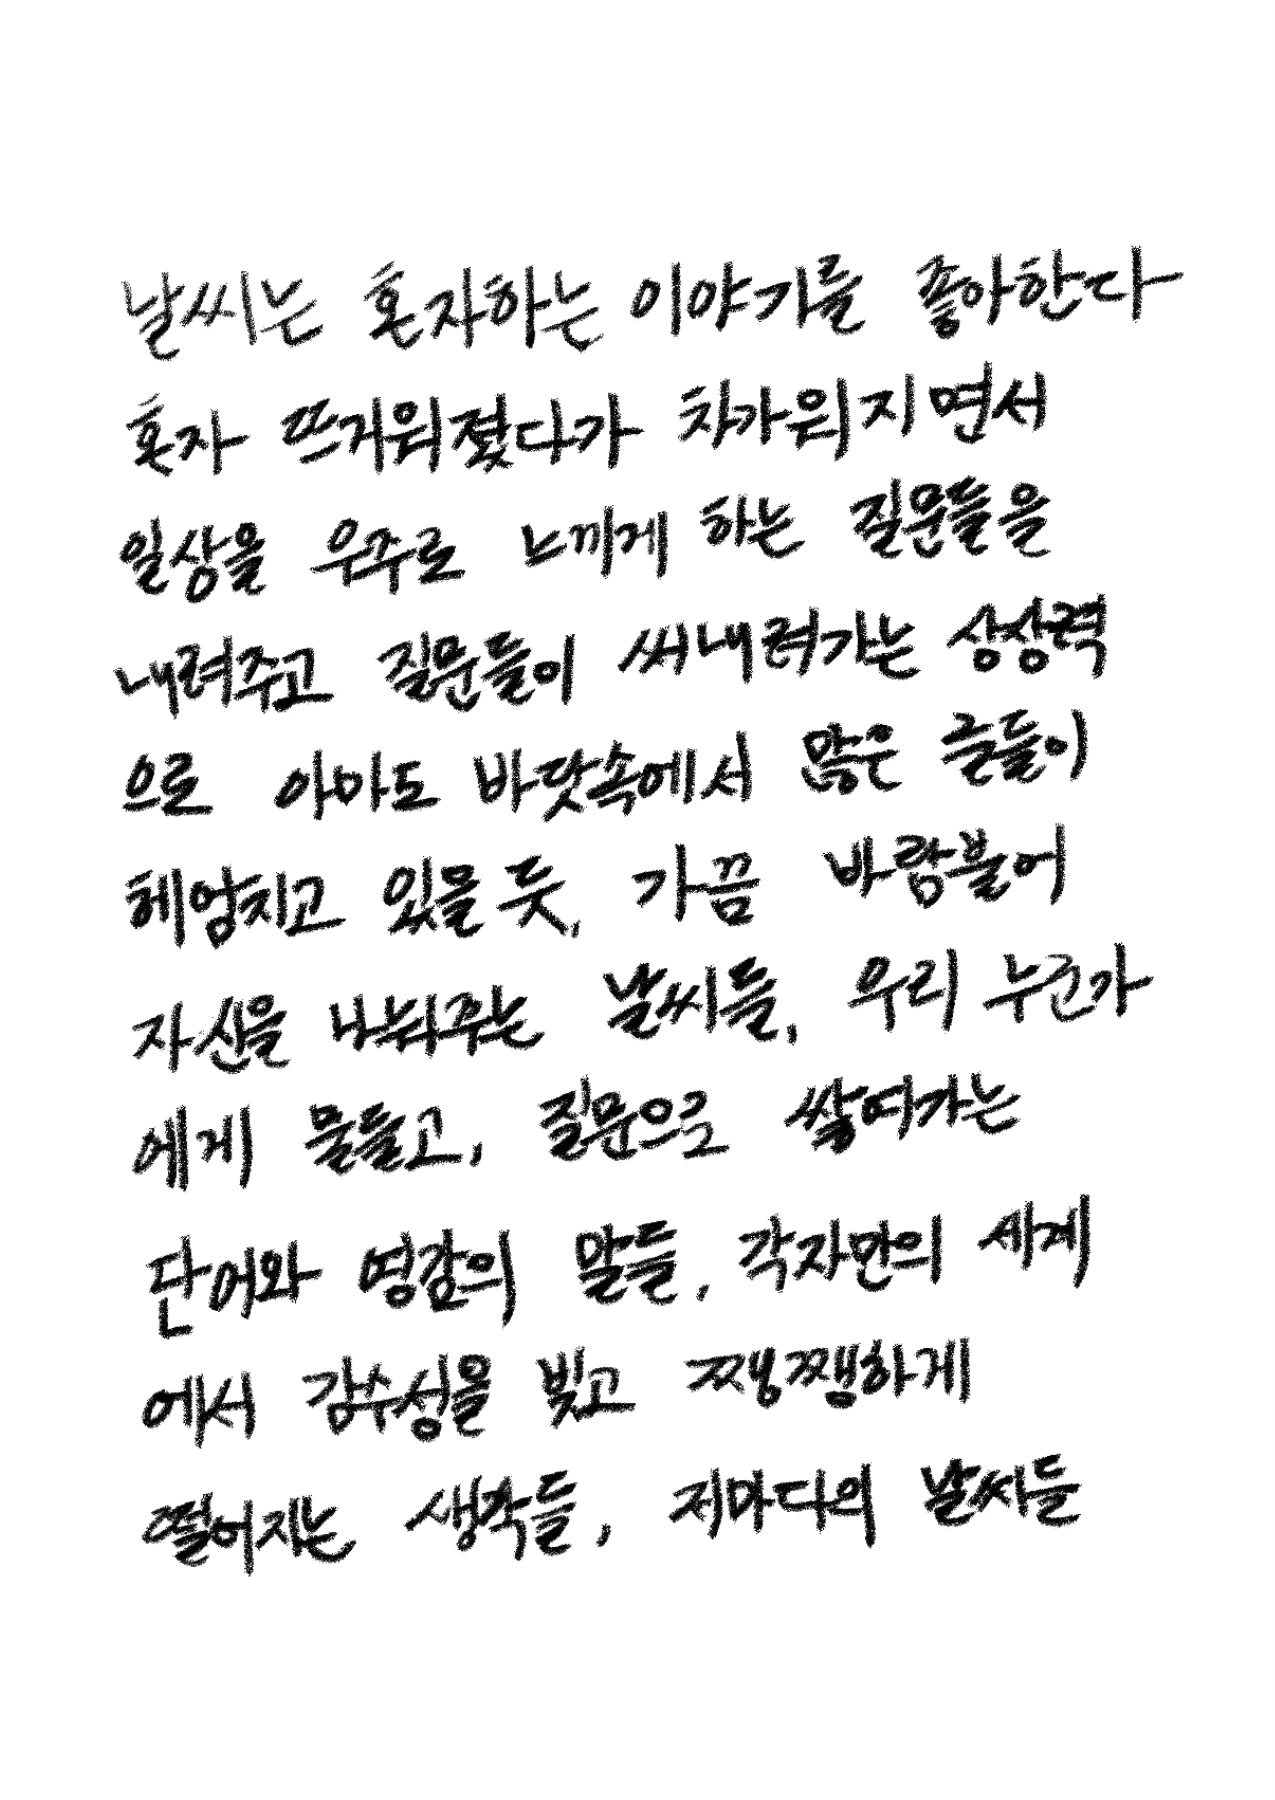 날씨는 혼자하는 이야기를 좋아한다
혼자 뜨거워졌다가 차가워지면서
일상을 우주로 느끼게 하는 질문들을
내려주고 질문들이 써내려가는 상상력
으로 아마도 바닷속에서 많은 글들이
헤엄치고 있을 듯, 가끔 바람불어
자신을 나눠주는 날씨들, 우리 누군가
에게 물들고, 질문으로 쌓여가는
단어와 영감의 말들, 각자만의 세계
에서 감수성을 빚고 쨍쨍하게
떨어지는 생각들, 저마다의 날씨들